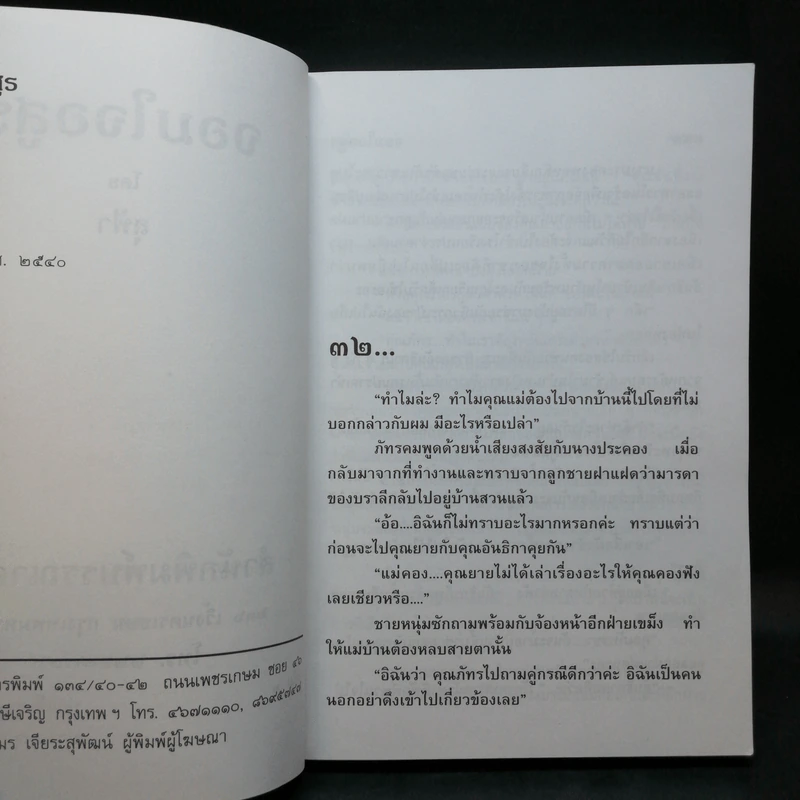 สูร
ศ. ๒๕๔๐
รพิมพ์ ๑๓๔/๔๐-๔๒ ถนนเพชรเกษม ซอย ๔๖
ษีเจริญ กรุงเทพฯ โทร. ๔๖๗๑๑๑๐, ๘๖๙๕๗๔๗
มร เจียระสุพัฒน์ ผู้พิมพ์ผู้โฆษณา
๓๒...
“ทำไมล่ะ? ทำไมคุณแม่ต้องไปจากบ้านนี้ไปโดยที่ไม่
บอกกล่าวกับผม มีอะไรหรือเปล่า”
ภัทรคมพูดด้วยน้ำเสียงสงสัยกับนางประคอง เมื่อ
กลับมาจากที่ทำงานและทราบจากลูกชายฝาแฝดว่ามารดา
ของบราลีกลับไปอยู่บ้านสวนแล้ว
“อ้อ....อิฉันก็ไม่ทราบอะไรมากหรอกค่ะ ทราบแต่ว่า
ก่อนจะไปคุณยายกับคุณอันธิกาคุยกัน”
“แม่คอง....คุณยายไม่ได้เล่าเรื่องอะไรให้คุณคองฟัง
เลยเชียวหรือ....”
ชายหนุ่มซักถามพร้อมกับจ้องหน้าอีกฝ่ายเขม็ง ทำ
ให้แม่บ้านต้องหลบสายตานั้น
“อิฉันว่า คุณภัทรไปถามคู่กรณีดีกว่าค่ะ อิฉันเป็นคน
นอกอย่าดึงเข้าไปเกี่ยวข้องเลย”